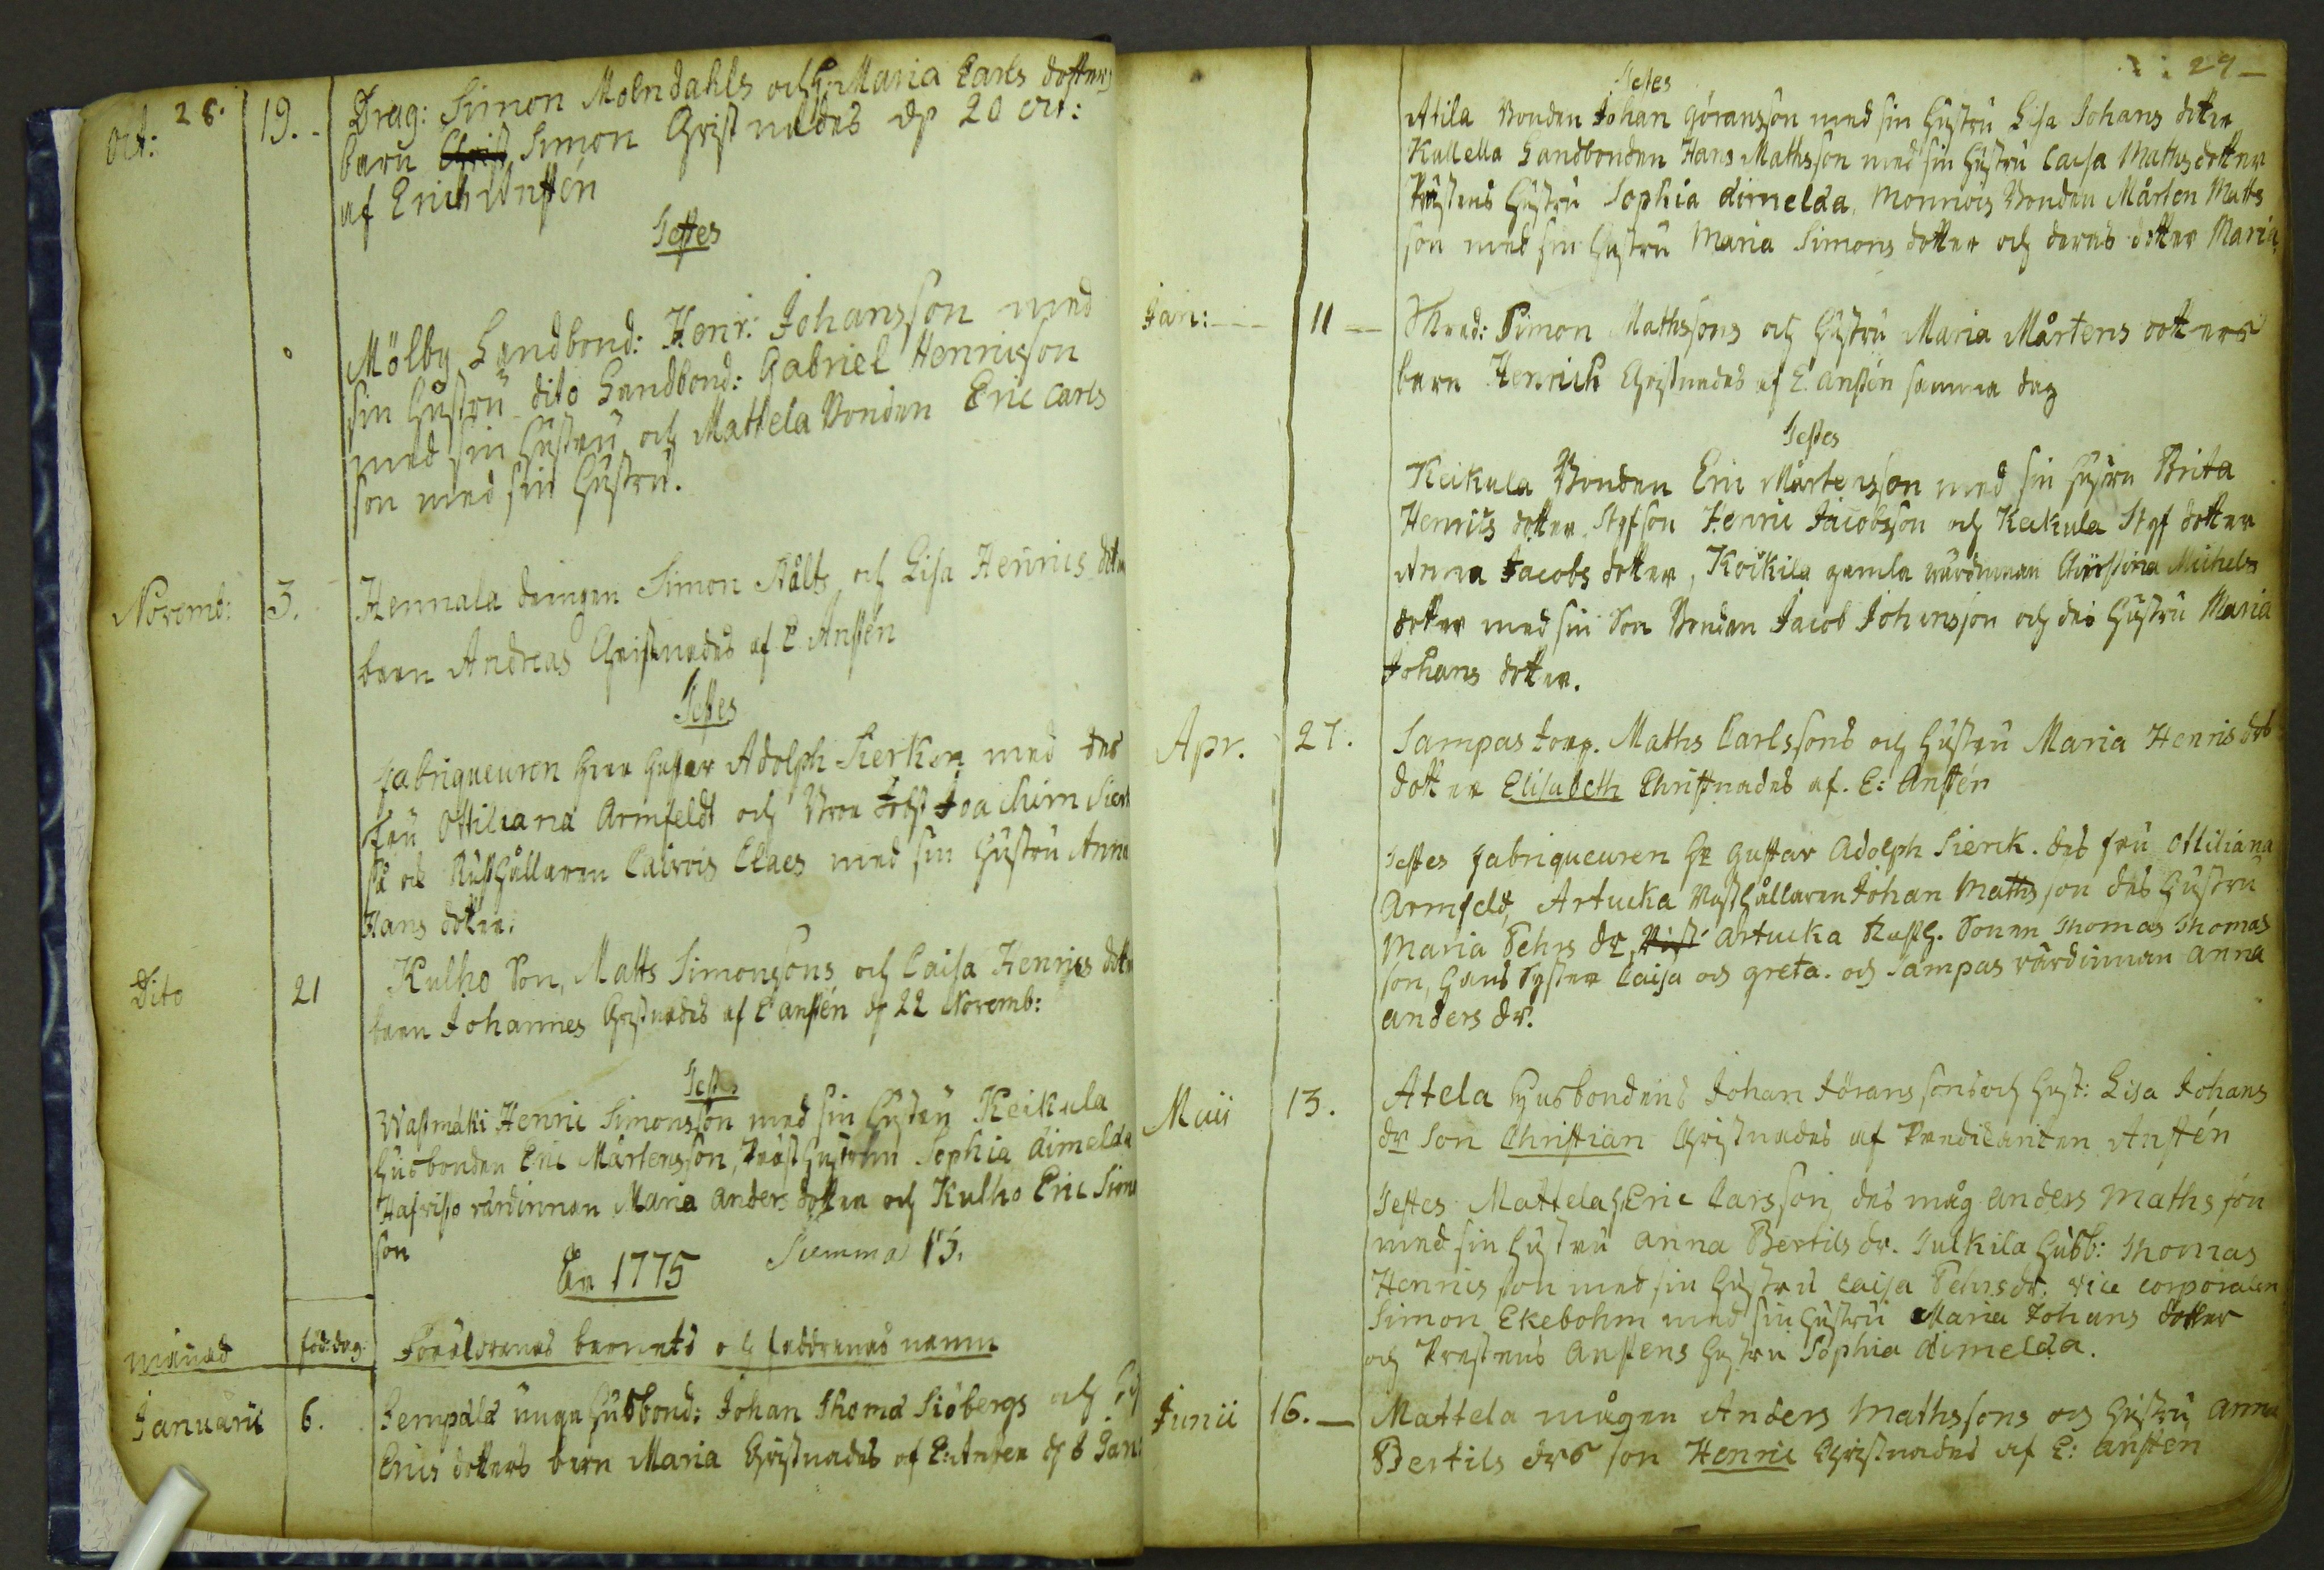 28.
Oct: 19. Drag: Simon Molndahls och H: Maria Carls dotters
barn Christ Simon Christnades dp 20 Oct:
af Erich Anstén
Testes
Mölby Landbond: Henr: Johansson med
sin Hustru dito Landbond: Gabriel Henricsson
med sin Hustru och Mattela Bonden Eric Carls
son med sin Hustru.
Novemb: 3. Hennala drängen Simon Stålts och Lisa Henrics dott
barn Andreas Christnades af E Anstén
Testes
Fabriqueuren Herr Gustav Adolph Sierken med des
Fru Ottiliana Armfeldt och Joachim Sier
och Rusthållaren Claes med sin Hustru Anna
Hans dotter.
Dito 21 Kulho Son, Matts Simonssons och Caisa Henrics dott
barn Johannes Christnades af E Anstén dp 22 Novemb:
Test:
Wastmäki Henric Simonsson med sin Hustru Keikala
Husbonden Eric Mårtensson, Präst Hustrun Sophia Aimelda
Hafristo värdinnan Maria Anders dotter och Kulho Eric Simon
son
Summa 15.
År 1775
månad föd:dag: Föräldrarnas barnets och faddrarnas namn
Januarii 6. Sempala unga Husbond: Johan Thoma Siöbergs och H
Erics dotters barn Maria Christnades af E: Ansten dp 6 Jan
29
Testes
Atila Bonden Johan Göransson med sin Hustru Lisa Johans dotter
Kullella Landbonden Hans Mathsson med sin Hustru Caisa Maths dotter
Prästens Hustru Sophia Aimelda, Monnois Bonden Mårten Matts
son med sin Hustru Maria Simons dotter och deras dotter Maria.
Jan: 11 Simon Mathssons och Hustru Maria Mårtens dotters
barn Henrich Christnades af E. Anstén samma dag
Testes
Keikula Bonden Eric Mårtensson med sin Hustru Brita
Henrics dotter, Styfson Henric Jacobsson och Keikula Styf dotter
Anna Jacobs dotter, Koikila gamla värdinnan Christina Michels
dotter med sin Son Bonden Jacob Johansson och des Hustru Maria
Johans dotter.
Apr. 27. Sampas torp. Maths Carlssons och Hustru Maria Henrics drs
dotter Elisabeth Christnades af. E: Anstén
Testes Fabriqueuren Hr Gustav Adolph Sierck. des fru Ottiliana
Armfeld, Artucka Rusthållaren Johan Mathsson des Hustru
Maria Pehrs dr, Artucka Rusth. Sonen Thomas Thomas
son, hans Syster Caisa och Greta. och Sampas värdinnan Anna
Anders dr.
Maii 13. Atela Husbondens Johan Jöranssons och Hust: Lisa Johans
dr Son Christian Christnades af Predicanten Anstén
Testes Mattela H. Eric Carsson, des måg Anders Mathsson
med sin Hustru Anna Bertils dr. Julkila Husb: Thomas
Henricsson med sin Hustru Caisa Pehrs dr. vice corporalen
Simon Ekebohm med sin Hustru Maria Johans dotter
och Prestens Anstens Hustru Sophia Aimelda.
Junii 16. Mattela mågen Anders Mathssons och Hustru Anna
Bertils drs son Henric Christnades af E: Anstén